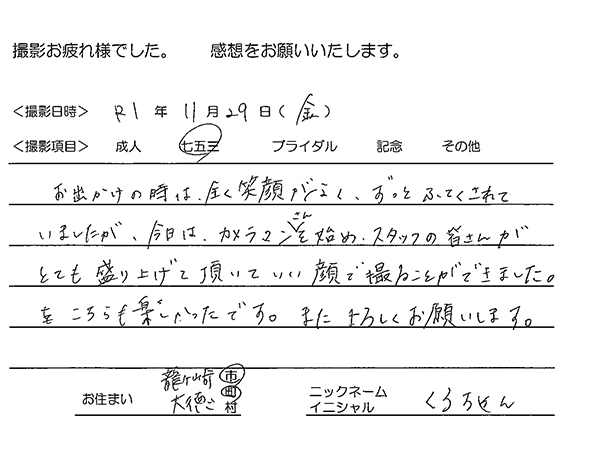 撮影お疲れ様でした。 感想をお願いいたします。
<撮影日時> R1 年 11 月 29 日 ( 金 )
<撮影項目> 成人 七五三 ブライダル 記念 その他
お出かけの時は、全く笑顔がなく、ずっとふてくされて
いましたが、今日は、カメラマンさんを始め、スタッフの皆さんが
とても盛り上げて頂いていい顔で撮ることができました。
こちらも楽しかったです。またよろしくお願いします。
お住まい 龍ヶ崎 市
大徳 町
村
ニックネーム
イニシャル くろちゃん